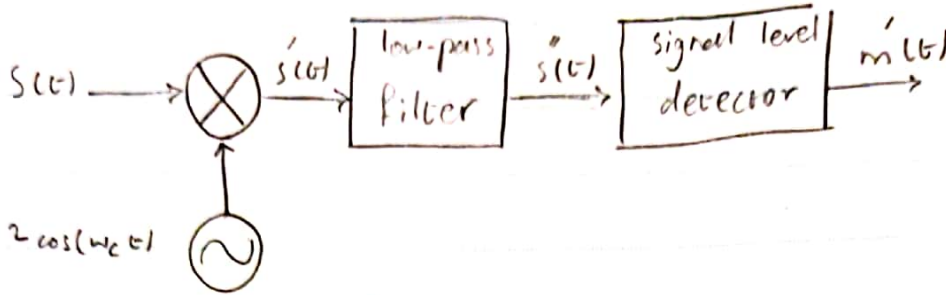 S(t)
s'(t)
low-pass
filter
s''(t)
signal level
detector
m'(t)
2 cos(wc t)